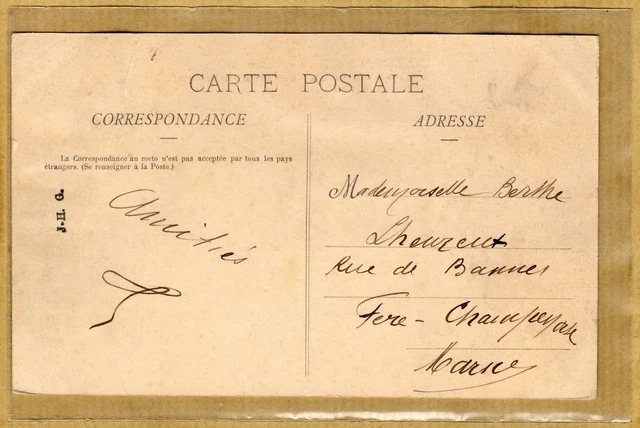 CARTE POSTALE
CORRESPONDANCE
La Correspondance au recto n'est pas acceptée par tous les pays
étrangers. (Se renseigner à la Poste.)
J.-H. G.
Amitiés
ADRESSE
Mademoiselle Berthe
Lheureux
Rue de Bannes
Fere - Champenoise
Marne